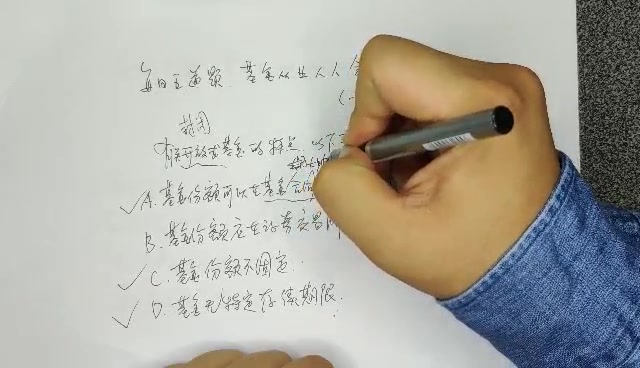 每日五道题 基金从业人人
封闭
有关开放式基金的特点 以下
A.基金份额可以在基金
B.基金份额应在证券交易所
C.基金份额不固定.
D.基金无特定存续期限.